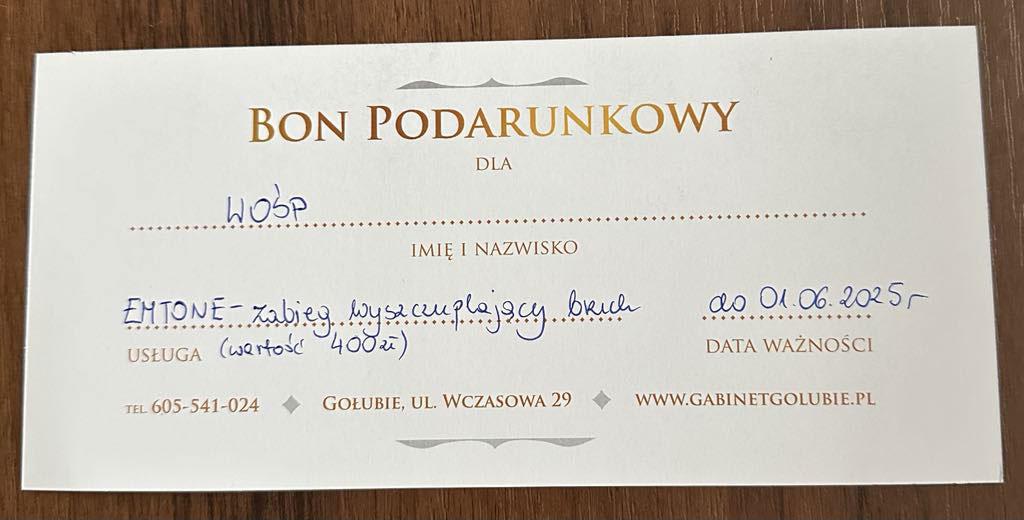 BON PODARUNKOWY
DLA
WOŚP
IMIĘ I NAZWISKO
EMTONE - zabieg wyszczuplający brzuch do 01.06.2025r
USŁUGA (wartość 400 zł) DATA WAŻNOŚCI
TEL. 605-541-024 GOŁUBIE, UL. WCZASOWA 29 WWW.GABINETGOLUBIE.PL